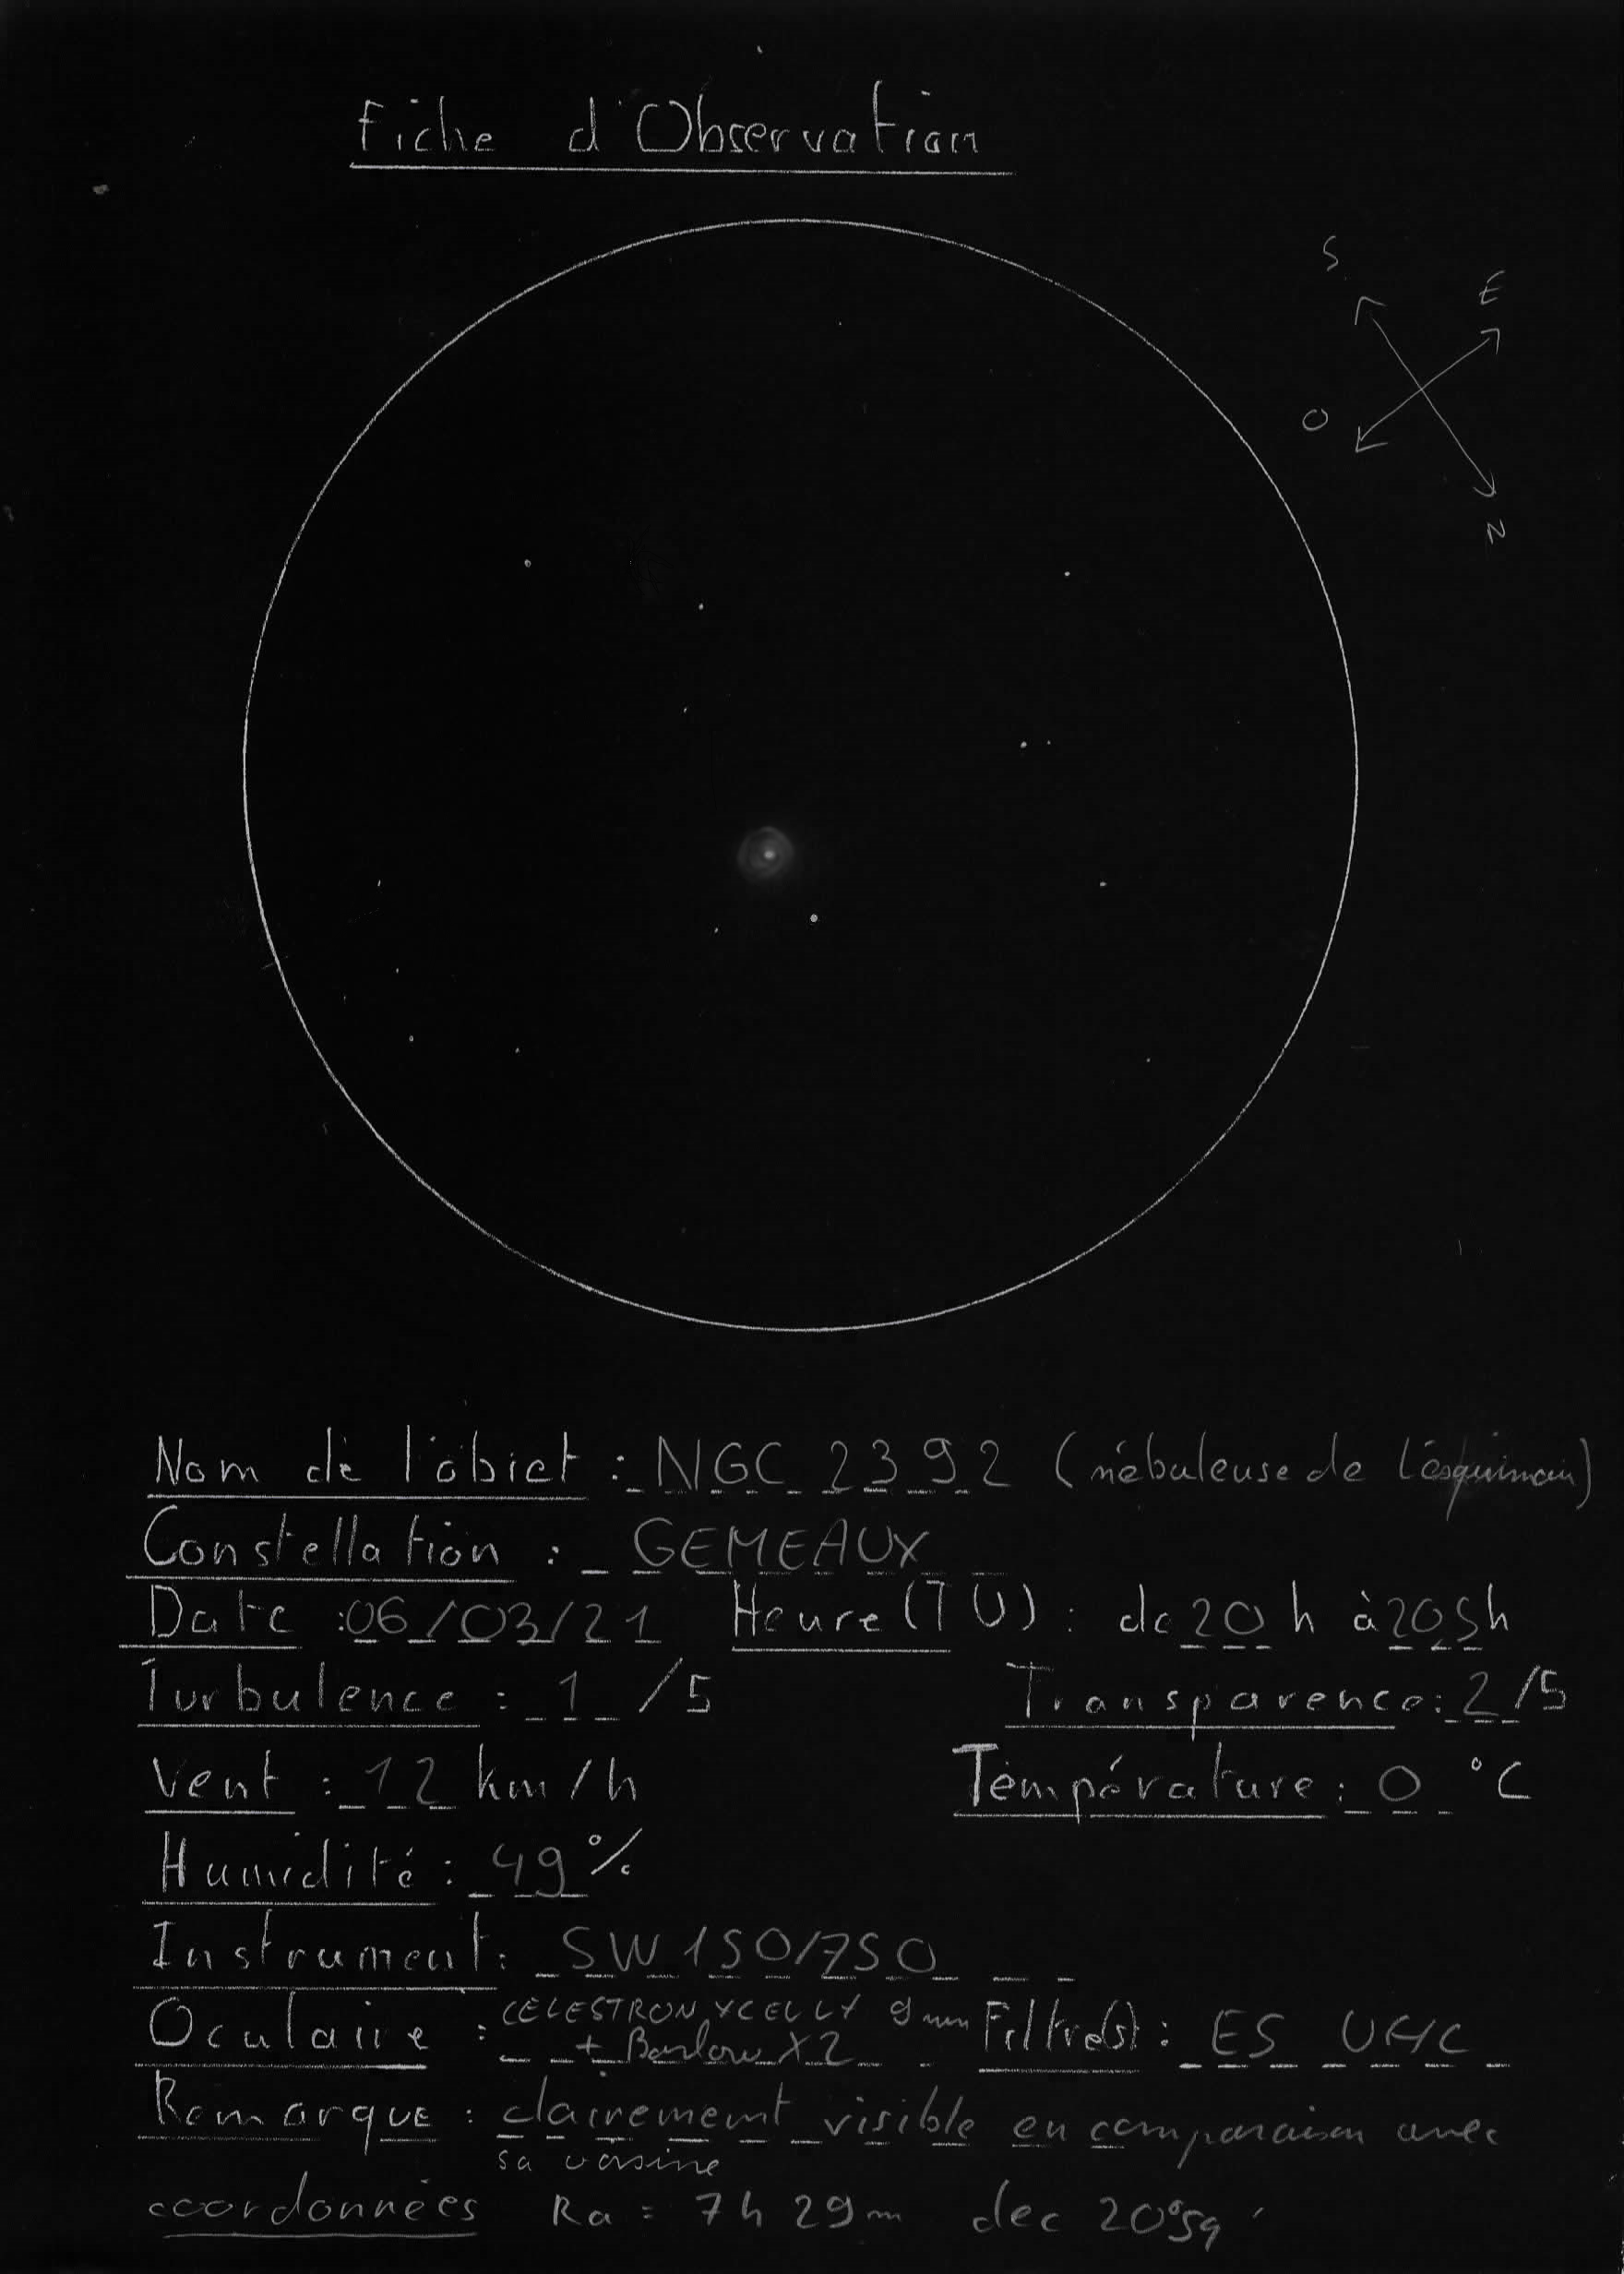 Fiche d'Observation
S
É
O
N
Nom de l'objet : NGC 2392 (nébuleuse de l'esquimau)
Constellation : GEMEAUX
Date : 06/03/21 Heure (TU) : de 20 h à 20,5h
Turbulence : 1 /5 Transparence : 2/5
Vent : 12 km/h Température : 0 °C
Humidité : 49 %
Instrument : SW 150/750
Oculaire : CELESTRON XCELLX 9 mm Filtre(s) : ES UHC
+ Barlow X2
Remarque : clairement visible en comparaison avec
sa voisine
coordonnées Ra = 7h 29m dec 20°59'